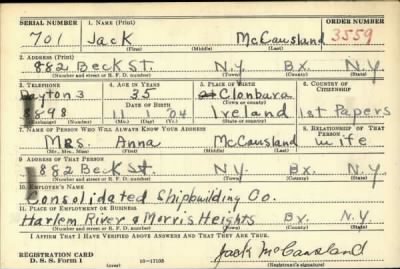 SERIAL NUMBER 1. NAME (Print) ORDER NUMBER
701 Jack McCausland 3559
(First) (Middle) (Last)
2. ADDRESS (Print)
882 Beck St. N.Y. Bx. N.Y.
(Number and street or R. F. D. number) (Town) (County) (State)
3. TELEPHONE 4. AGE IN YEARS 5. PLACE OF BIRTH 6. COUNTRY OF CITIZENSHIP
Dayton 3 35 Clonbara
DATE OF BIRTH (Town or county)
8898 11 '04 Ireland 1st Papers
(Exchange) (Number) (Mo.) (Day) (Yr.) (State or country)
7. NAME OF PERSON WHO WILL ALWAYS KNOW YOUR ADDRESS 8. RELATIONSHIP OF THAT PERSON
Mrs. Anna McCausland wife
(Mr., Mrs., Miss) (First) (Middle) (Last)
9. ADDRESS OF THAT PERSON
882 Beck St. N.Y. Bx. N.Y.
(Number and street or R. F. D. number) (Town) (County) (State)
10. EMPLOYER'S NAME
Consolidated Shipbuilding Co.
11. PLACE OF EMPLOYMENT OR BUSINESS
Harlem River & Morris Heights Bx. N.Y.
(Number and street or R. F. D. number) (Town) (County) (State)
I AFFIRM THAT I HAVE VERIFIED ABOVE ANSWERS AND THAT THEY ARE TRUE.
REGISTRATION CARD Jack McCausland
D. S. S. Form 1 (over) 16—17105 (Registrant's signature)